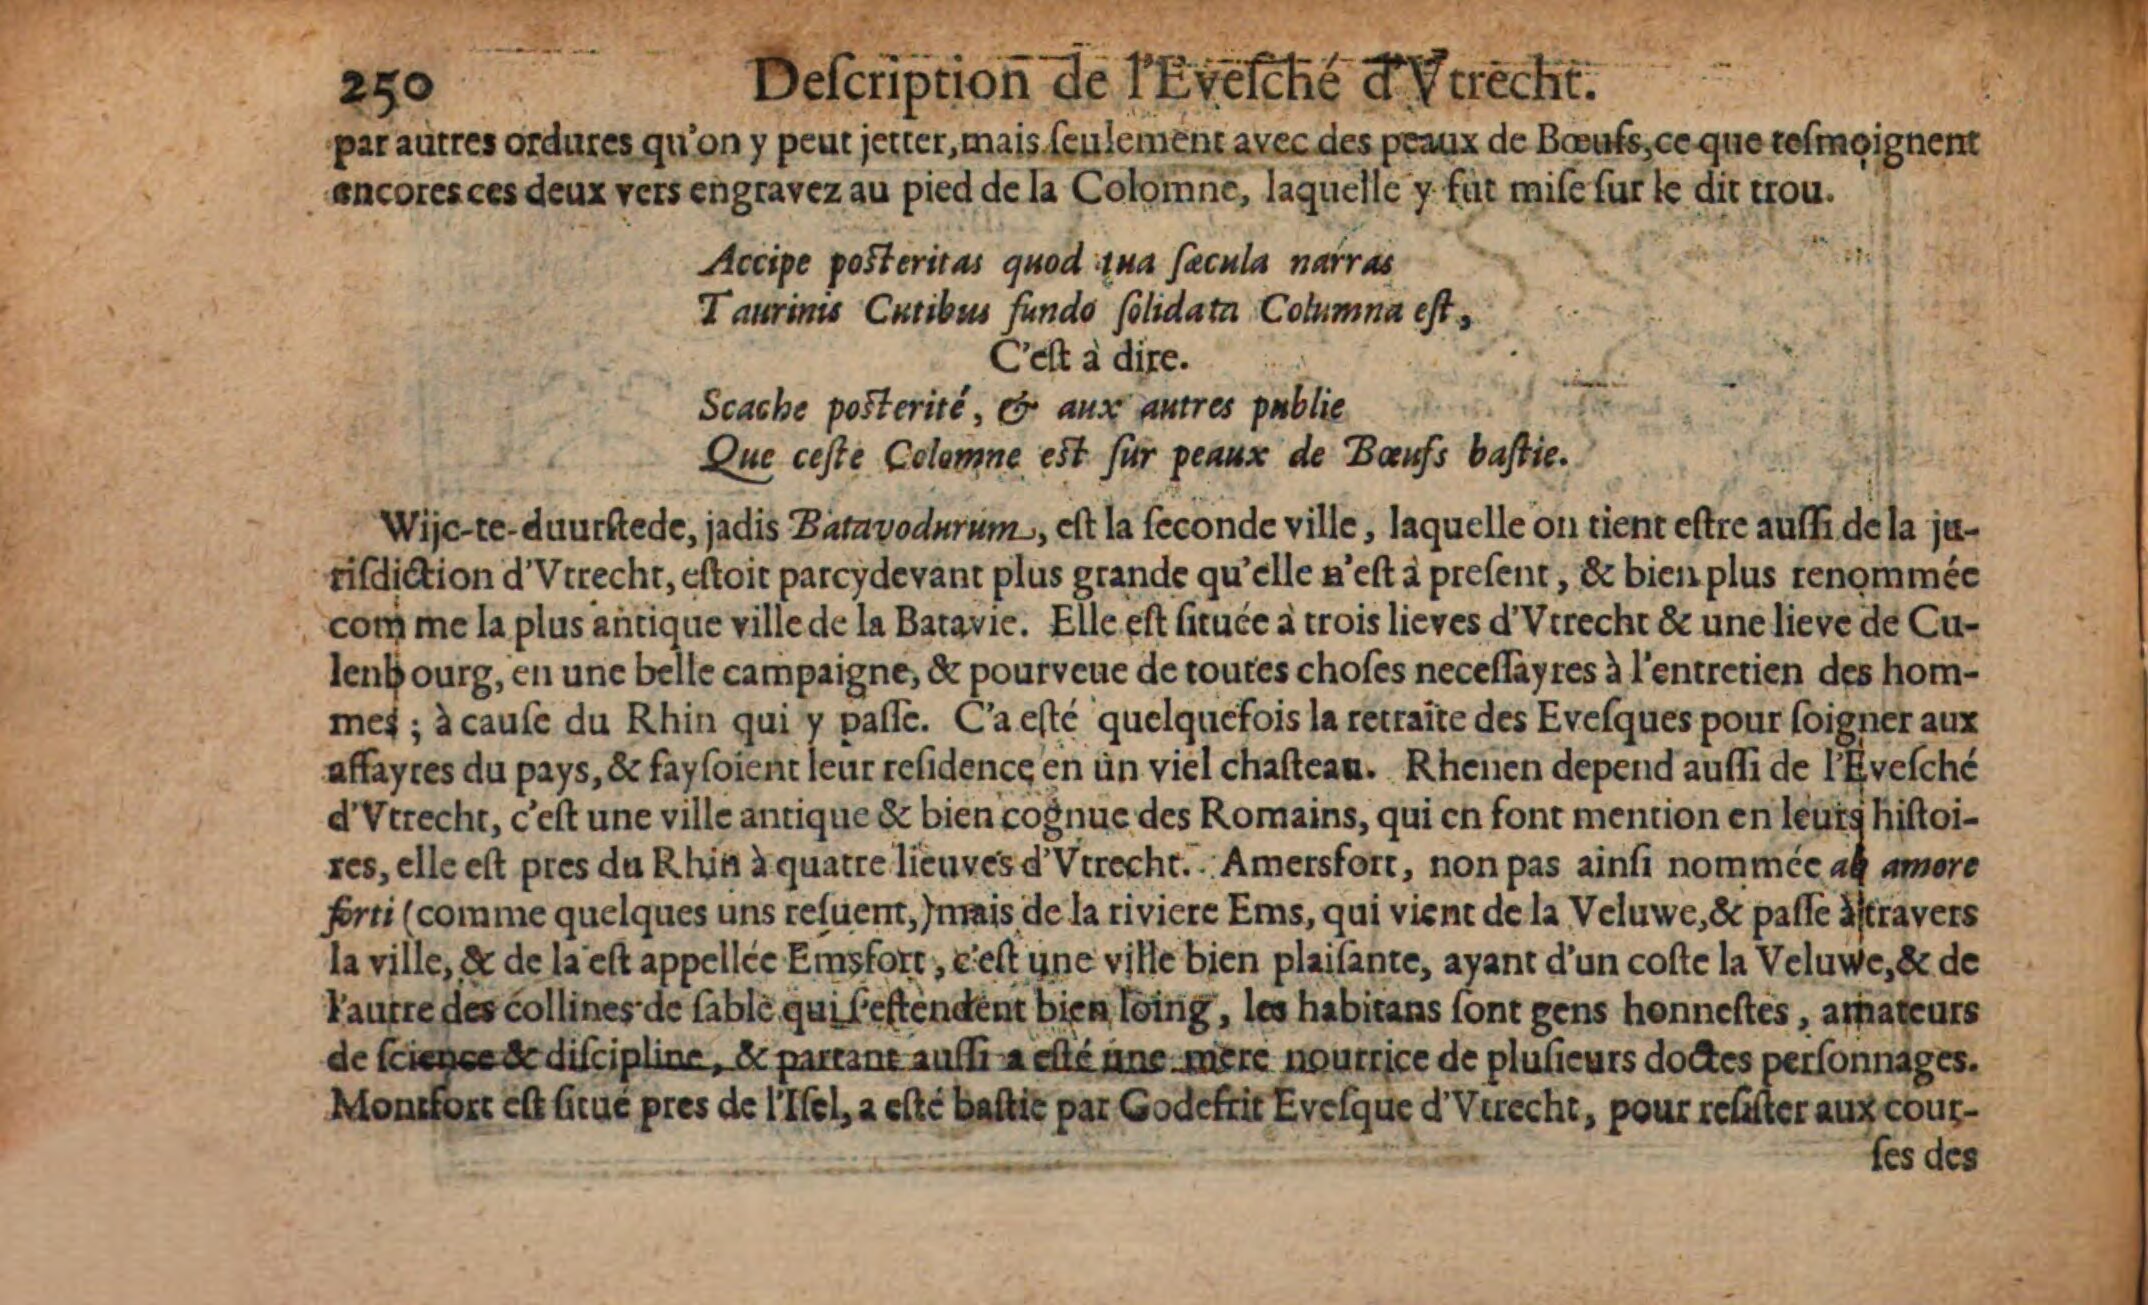 250 Deſcription de l'Eveſché d'Vtrecht.
par autres ordures qu'on y peut jetter, mais ſeulement avec des peaux de Bœufs, ce que teſmoignent
encores ces deux vers engravez au pied de la Colomne, laquelle y fut miſe ſur le dit trou.
Accipe poſteritas quod tua ſæcula narras
Taurinis Cutibus fundo ſolidata Columna eſt,
C'eſt à dire.
Scache poſterité, & aux autres publie
Que ceſte Colomne eſt ſur peaux de Bœufs baſtie.
Wijc-te-duurſtede, jadis Batavodurum, eſt la ſeconde ville, laquelle on tient eſtre auſſi de la ju-
riſdiction d'Vtrecht, eſtoit parcydevant plus grande qu'elle n'eſt à preſent, & bien plus renommée
comme la plus antique ville de la Batavie. Elle eſt ſituée à trois lieves d'Vtrecht & une lieve de Cu-
lenbourg, en une belle campaigne, & pourveue de toutes choſes neceſſayres à l'entretien des hom-
mes; à cauſe du Rhin qui y paſſe. C'a eſté quelquefois la retraite des Eveſques pour ſoigner aux
affayres du pays, & fayſoient leur reſidence en un viel chaſteau. Rhenen depend auſſi de l'Eveſché
d'Vtrecht, c'eſt une ville antique & bien cognue des Romains, qui en font mention en leurs hiſtoi-
res, elle eſt pres du Rhin à quatre lieuves d'Vtrecht. Amersfort, non pas ainſi nommée ab amore
forti (comme quelques uns reſuent,) mais de la riviere Ems, qui vient de la Veluwe, & paſſe à travers
la ville, & de la eſt appellée Emsfort, c'eſt une ville bien plaiſante, ayant d'un coſte la Veluwe, & de
l'autre des collines de ſable qui s'eſtendent bien loing, les habitans ſont gens honneſtes, amateurs
de ſcience & diſcipline, & partant auſſi a eſté une mere nourrice de pluſieurs doctes perſonnages.
Montfort eſt ſitué pres de l'Iſel, a eſté baſtie par Godefrit Eveſque d'Vtrecht, pour reſiſter aux cour-
ſes des